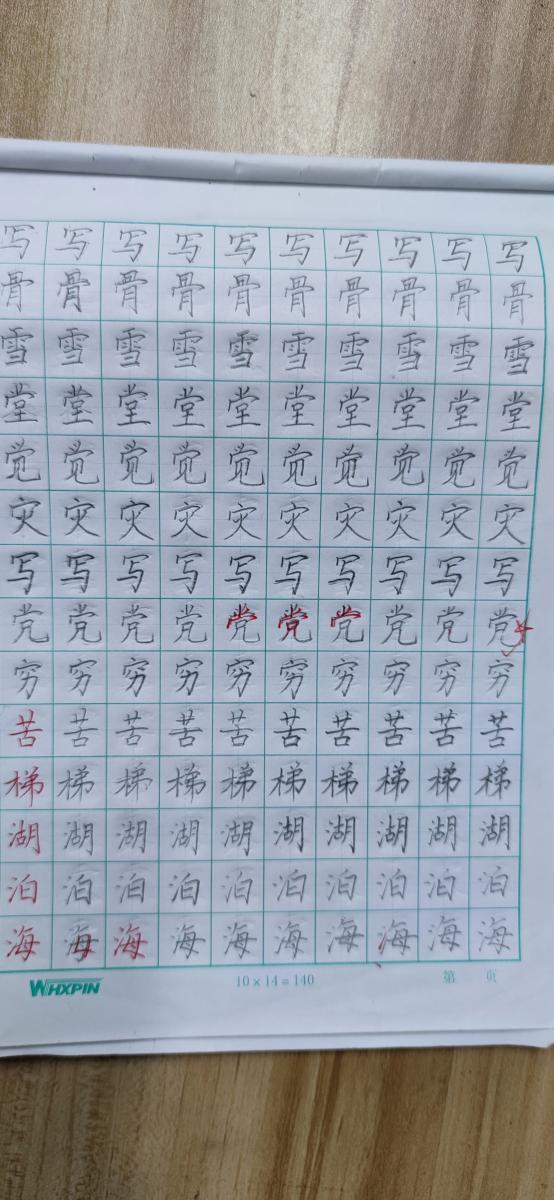 写写写写写写写写写写
骨骨骨骨骨骨骨骨骨骨
雪雪雪雪雪雪雪雪雪雪
堂堂堂堂堂堂堂堂堂堂
觉觉觉觉觉觉觉觉觉觉
灾灾灾灾灾灾灾灾灾灾
写写写写写写写写写写
党党党党党党党党党党
穷穷穷穷穷穷穷穷穷穷
苦苦苦苦苦苦苦苦苦苦
梯梯梯梯梯梯梯梯梯梯
湖湖湖湖湖湖湖湖湖湖
泊泊泊泊泊泊泊泊泊泊
海海海海海海海海海海
WHXPIN 10×14=140 第 页